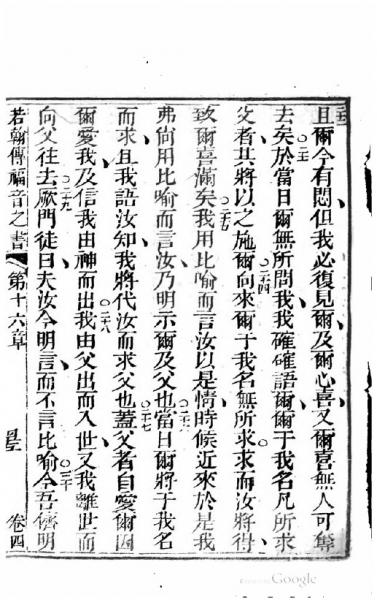 且爾今有悶但我必復見爾及爾心喜又爾喜無人可奪
去矣○二三於當日爾無所問我我確確語爾爾于我名凡所求
父者其將以之施爾○二四向來爾于我名無所求求而汝將得
致爾喜滿矣○二五我用比喻而言汝以是情時候近來於是我
弗尚用比喻而言汝乃明示爾及父也○二六當日爾將于我名
而求且我語汝知我將代汝而求父也○二七蓋父者自愛爾因
爾愛我及信我由神而出○二八我由父出而入世又我離世而
向父往去○二九厥門徒曰夫汝今明言而不言比喻○三十今吾儕明
若翰傳福音之書 第十六章 卷四
Google